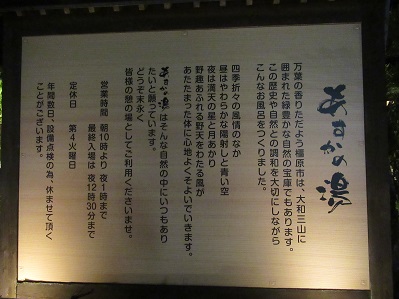 あすかの湯
万葉の香りただよう橿原市は、大和三山に
囲まれた緑豊かな自然の宝庫でもあります。
この歴史や自然との調和を大切にしながら
こんなお風呂をつくりました。
四季折々の風情のなか
昼はやわらかな陽射しと青い空
夜は満天の星と月あかり
野趣あふれる野天をわたる風が
あたたまった体に心地よくそよいでいきます。
あすかの湯はそんな自然の中にいつもあり
たいと願っています。
どうぞ末永く
皆様の憩の場としてご利用くださいませ。
営業時間 朝10時より 夜1時まで
最終入場は 夜12時30分まで
定休日 第4火曜日
年間数日、設備点検の為、休ませて頂く
ことがございます。